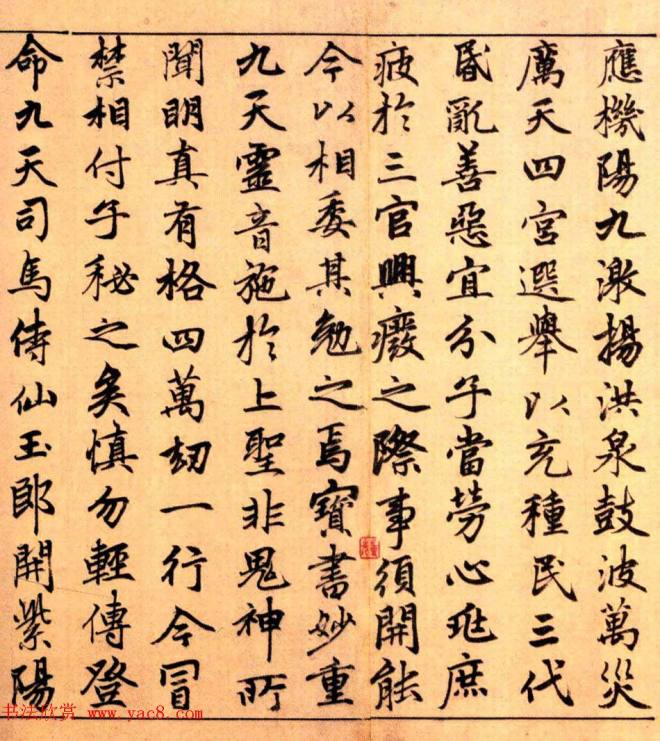 應機陽九激揚洪泉鼓波萬災
厲天四宮選舉以充種民三代
昏亂善惡宜分子當勞心兆庶
疲於三官興癈之際事須開能
今以相委其勉之焉寶書妙重
九天靈音施於上聖非鬼神所
聞明真有格四萬劫一行今冒
禁相付子秘之矣慎勿輕傳登
命九天司馬侍仙玉郎開紫陽
书法欣赏 www.yac8.com